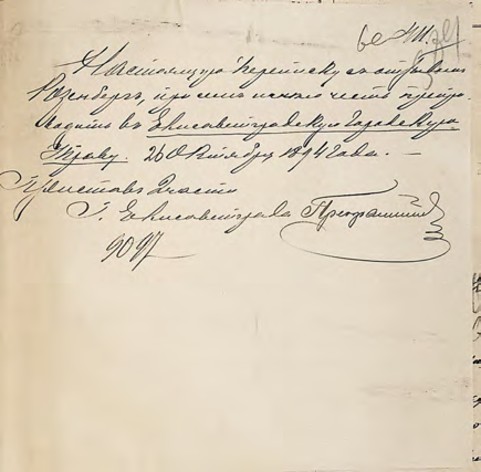 Настоящую переписку съ отзывомъ
Розенбергъ, при семъ имѣю честь препро-
водить въ Елисаветградскую Городскую
Управу. 26 Октября 1894 года. —
Приставъ 2 части
Г. Елисаветграда
9097